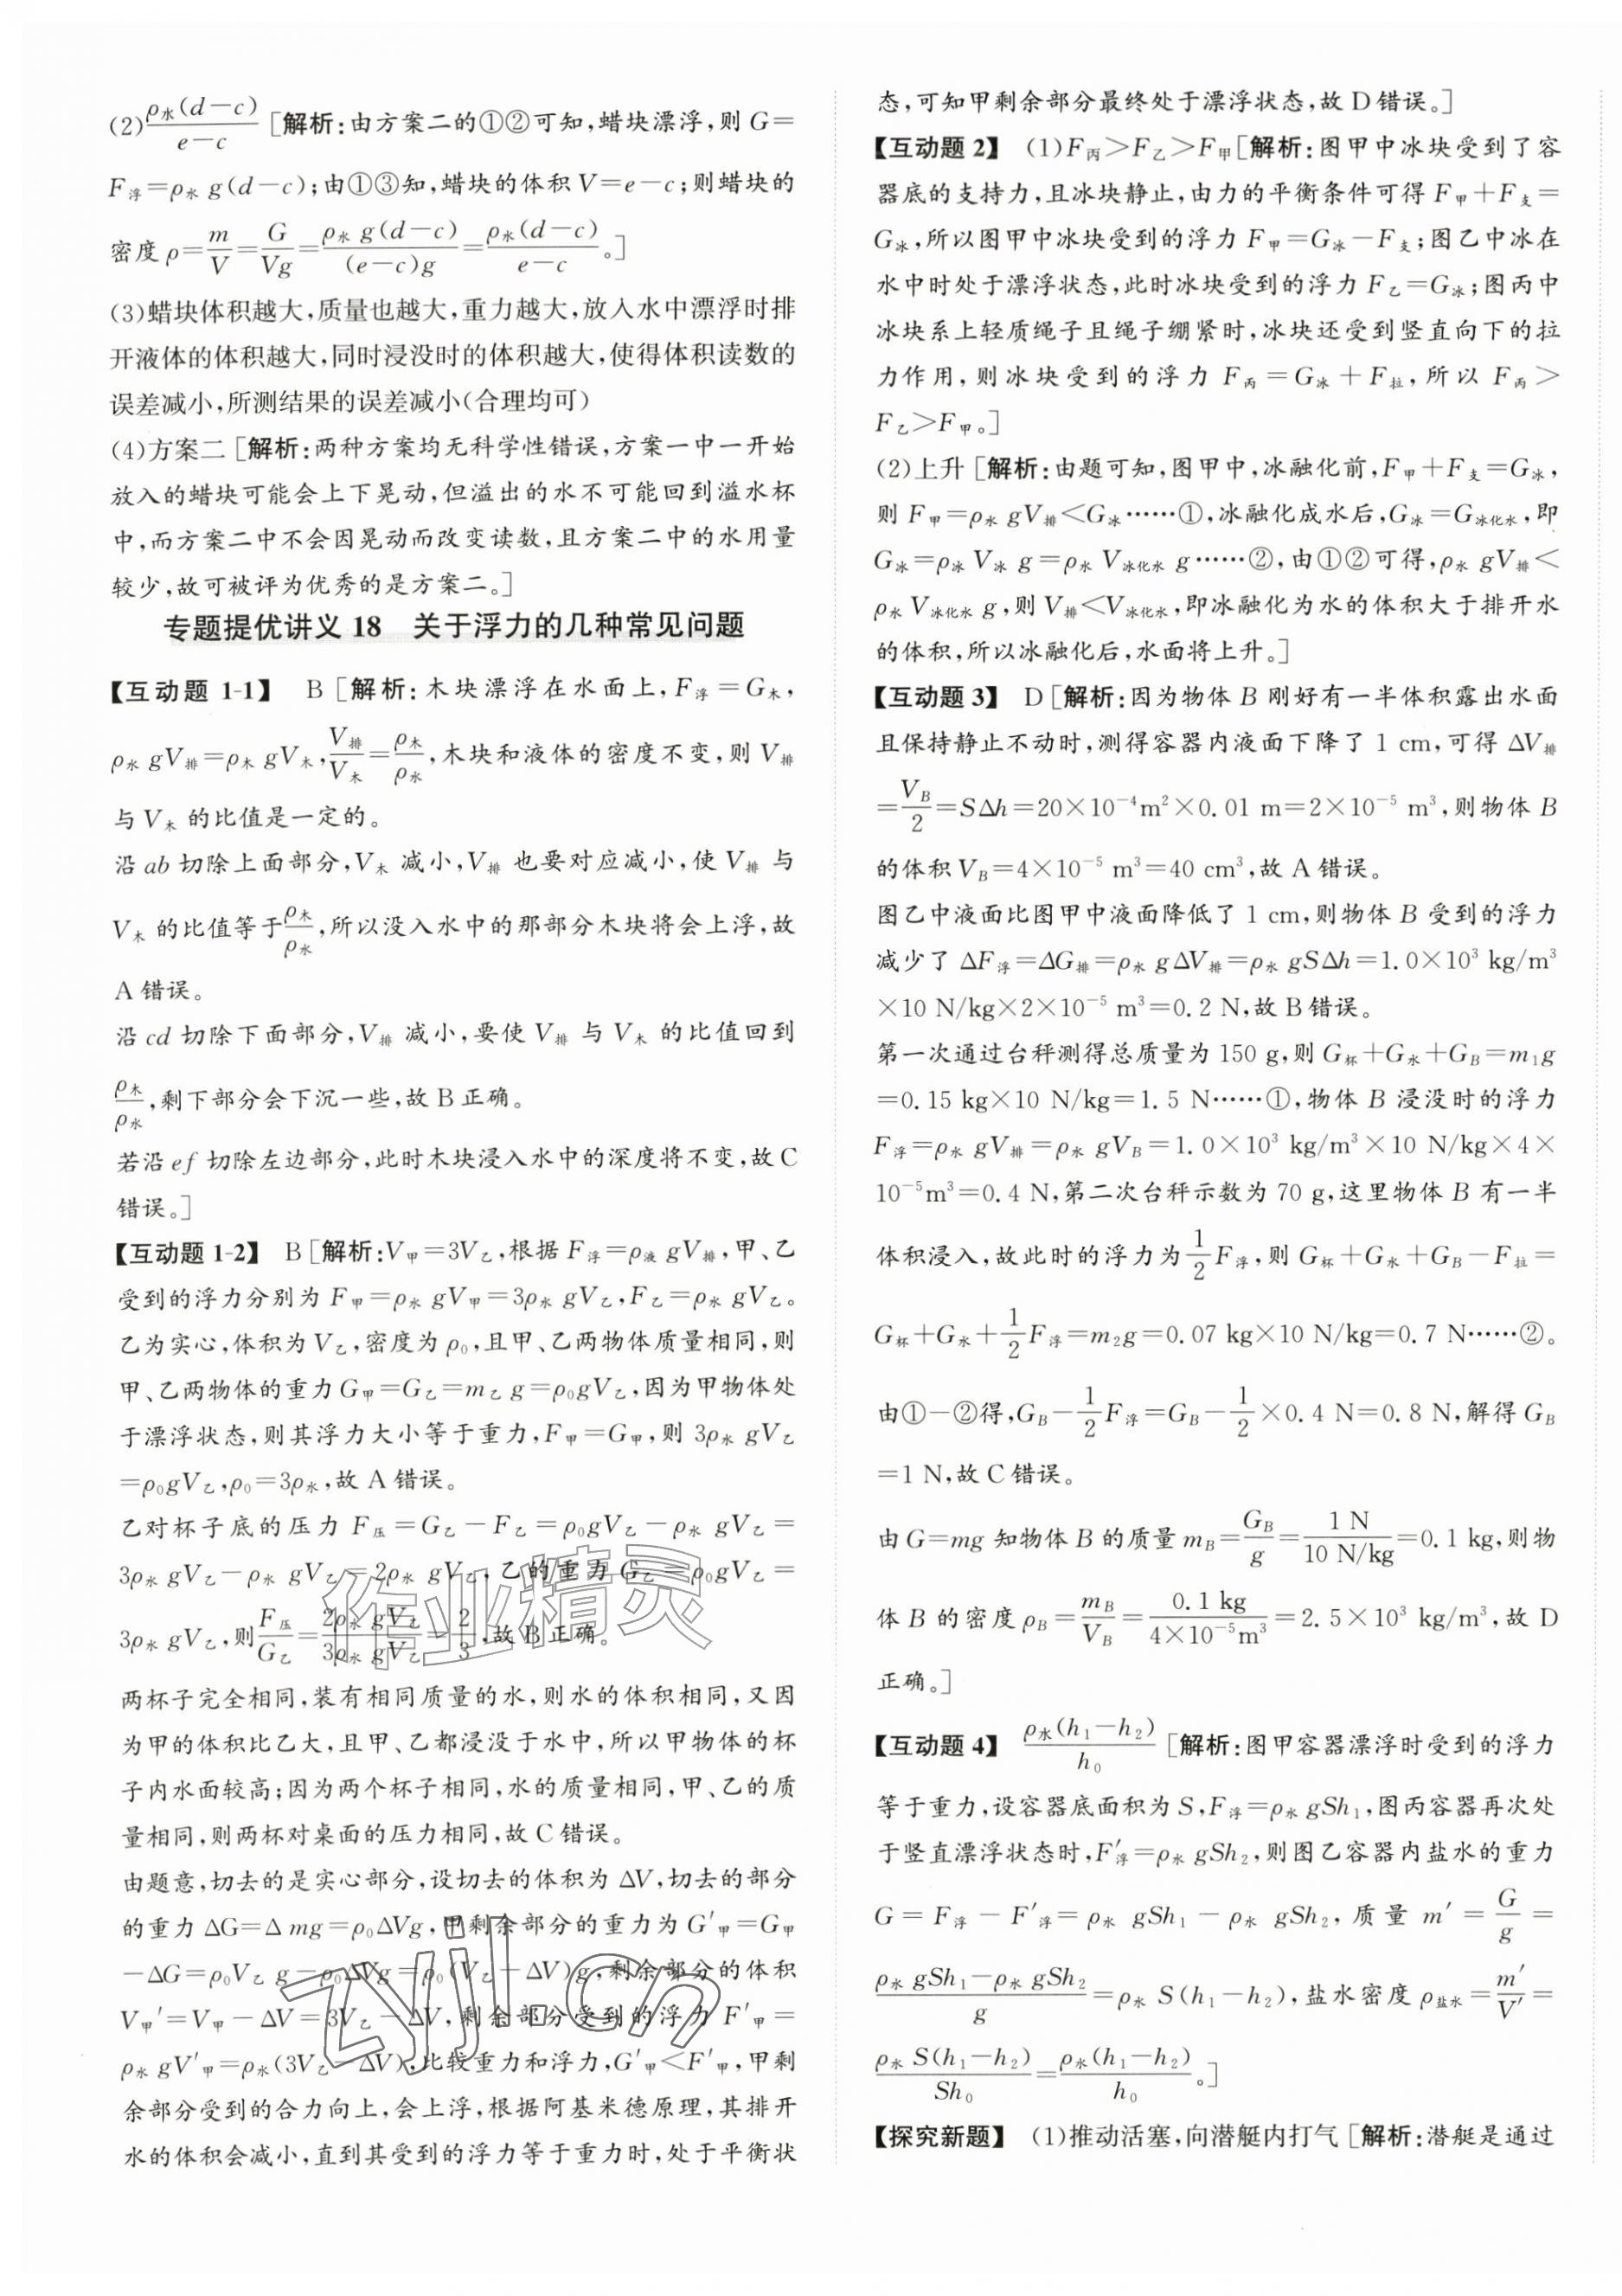 (2)ρ水(d−c)/(e−c) [解析:由方案二的①②可知,蜡块漂浮,则 G=
F浮=ρ水 g(d−c);由①③知,蜡块的体积 V=e−c;则蜡块的
密度 ρ=m/V=G/Vg=ρ水 g(d−c)/(e−c)g=ρ水(d−c)/(e−c)。]
(3)蜡块体积越大,质量也越大,重力越大,放入水中漂浮时排
开液体的体积越大,同时浸没时的体积越大,使得体积读数的
误差减小,所测结果的误差减小(合理均可)
(4)方案二 [解析:两种方案均无科学性错误,方案一中一开始
放入的蜡块可能会上下晃动,但溢出的水不可能回到溢水杯
中,而方案二中不会因晃动而改变读数,且方案二中的水用量
较少,故可被评为优秀的是方案二。]
专题提优讲义 18 关于浮力的几种常见问题
【互动题 1-1】 B [解析:木块漂浮在水面上,F浮=G木,
ρ水 gV排=ρ木 gV木,V排/V木=ρ木/ρ水,木块和液体的密度不变,则 V排
与 V木 的比值是一定的。
沿 ab 切除上面部分,V木 减小,V排 也要对应减小,使 V排 与
V木 的比值等于ρ木/ρ水,所以没入水中的那部分木块将会上浮,故
A 错误。
沿 cd 切除下面部分,V排 减小,要使 V排 与 V木 的比值回到
ρ木/ρ水,剩下部分会下沉一些,故 B 正确。
若沿 ef 切除左边部分,此时木块浸入水中的深度将不变,故 C
错误。]
【互动题 1-2】 B [解析:V甲=3V乙,根据 F浮=ρ液 gV排,甲、乙
受到的浮力分别为 F甲=ρ水 gV甲=3ρ水 gV乙,F乙=ρ水 gV乙。
乙为实心,体积为 V乙,密度为 ρ0,且甲、乙两物体质量相同,则
甲、乙两物体的重力 G甲=G乙=m乙 g=ρ0gV乙,因为甲物体处
于漂浮状态,则其浮力大小等于重力,F甲=G甲,则 3ρ水 gV乙
=ρ0gV乙,ρ0=3ρ水,故 A 错误。
乙对杯子底的压力 F压=G乙−F乙=ρ0gV乙−ρ水 gV乙=
3ρ水 gV乙−ρ水 gV乙=2ρ水 gV乙,乙的重力 G乙=ρ0gV乙=
3ρ水 gV乙,则F压/G乙=2ρ水 gV乙/3ρ水 gV乙=2/3,故 B 正确。
两杯子完全相同,装有相同质量的水,则水的体积相同,又因
为甲的体积比乙大,且甲、乙都浸没于水中,所以甲物体的杯
子内水面较高;因为两个杯子相同,水的质量相同,甲、乙的质
量相同,则两杯对桌面的压力相同,故 C 错误。
由题意,切去的是实心部分,设切去的体积为 ΔV,切去的部分
的重力 ΔG=Δ mg=ρ0ΔVg,甲剩余部分的重力为 G′甲=G甲
−ΔG=ρ0V乙 g−ρ0ΔVg=ρ0(V乙−ΔV)g,剩余部分的体积
V甲′=V甲−ΔV=3V乙−ΔV,剩余部分受到的浮力 F′甲=
ρ水 gV′甲=ρ水(3V乙−ΔV),比较重力和浮力,G′甲<F′甲,甲剩
余部分受到的合力向上,会上浮,根据阿基米德原理,其排开
水的体积会减小,直到其受到的浮力等于重力时,处于平衡状
态,可知甲剩余部分最终处于漂浮状态,故 D 错误。]
【互动题 2】 (1)F丙>F乙>F甲[解析:图甲中冰块受到了容
器底的支持力,且冰块静止,由力的平衡条件可得 F甲+F支=
G冰,所以图甲中冰块受到的浮力 F甲=G冰−F支;图乙中冰在
水中时处于漂浮状态,此时冰块受到的浮力 F乙=G冰;图丙中
冰块系上轻质绳子且绳子绷紧时,冰块还受到竖直向下的拉
力作用,则冰块受到的浮力 F丙=G冰+F拉,所以 F丙>
F乙>F甲。]
(2)上升 [解析:由题可知,图甲中,冰融化前,F甲+F支=G冰,
则 F甲=ρ水 gV排<G冰……①,冰融化成水后,G冰=G冰化水,即
G冰=ρ冰 V冰 g=ρ水 V冰化水 g……②,由①②可得,ρ水 gV排<
ρ水 V冰化水 g,则 V排<V冰化水,即冰融化为水的体积大于排开水
的体积,所以冰融化后,水面将上升。]
【互动题 3】 D [解析:因为物体 B 刚好有一半体积露出水面
且保持静止不动时,测得容器内液面下降了 1 cm,可得 ΔV排
=VB/2=SΔh=20×10⁻⁴m²×0.01 m=2×10⁻⁵ m³,则物体 B
的体积 VB=4×10⁻⁵ m³=40 cm³,故 A 错误。
图乙中液面比图甲中液面降低了 1 cm,则物体 B 受到的浮力
减少了 ΔF浮=ΔG排=ρ水 gΔV排=ρ水 gSΔh=1.0×10³ kg/m³
×10 N/kg×2×10⁻⁵ m³=0.2 N,故 B 错误。
第一次通过台秤测得总质量为 150 g,则 G杯+G水+GB=m1g
=0.15 kg×10 N/kg=1.5 N……①,物体 B 浸没时的浮力
F浮=ρ水 gV排=ρ水 gVB=1.0×10³ kg/m³×10 N/kg×4×
10⁻⁵m³=0.4 N,第二次台秤示数为 70 g,这里物体 B 有一半
体积浸入,故此时的浮力为1/2F浮,则 G杯+G水+GB−F拉=
G杯+G水+1/2F浮=m2g=0.07 kg×10 N/kg=0.7 N……②。
由①−②得,GB−1/2F浮=GB−1/2×0.4 N=0.8 N,解得 GB
=1 N,故 C 错误。
由 G=mg 知物体 B 的质量 mB=GB/g=1 N/10 N/kg=0.1 kg,则物
体 B 的密度 ρB=mB/VB=0.1 kg/4×10⁻⁵m³=2.5×10³ kg/m³,故 D
正确。]
【互动题 4】 ρ水(h1−h2)/h0 [解析:图甲容器漂浮时受到的浮力
等于重力,设容器底面积为 S,F浮=ρ水 gSh1,图丙容器再次处
于竖直漂浮状态时,F′浮=ρ水 gSh2,则图乙容器内盐水的重力
G=F浮−F′浮=ρ水 gSh1−ρ水 gSh2,质量 m′=G/g=
(ρ水 gSh1−ρ水 gSh2)/g=ρ水 S(h1−h2),盐水密度 ρ盐水=m′/V′=
ρ水 S(h1−h2)/Sh0=ρ水(h1−h2)/h0。]
【探究新题】 (1)推动活塞,向潜艇内打气 [解析:潜艇是通过
作业精灵
zyjl.cn